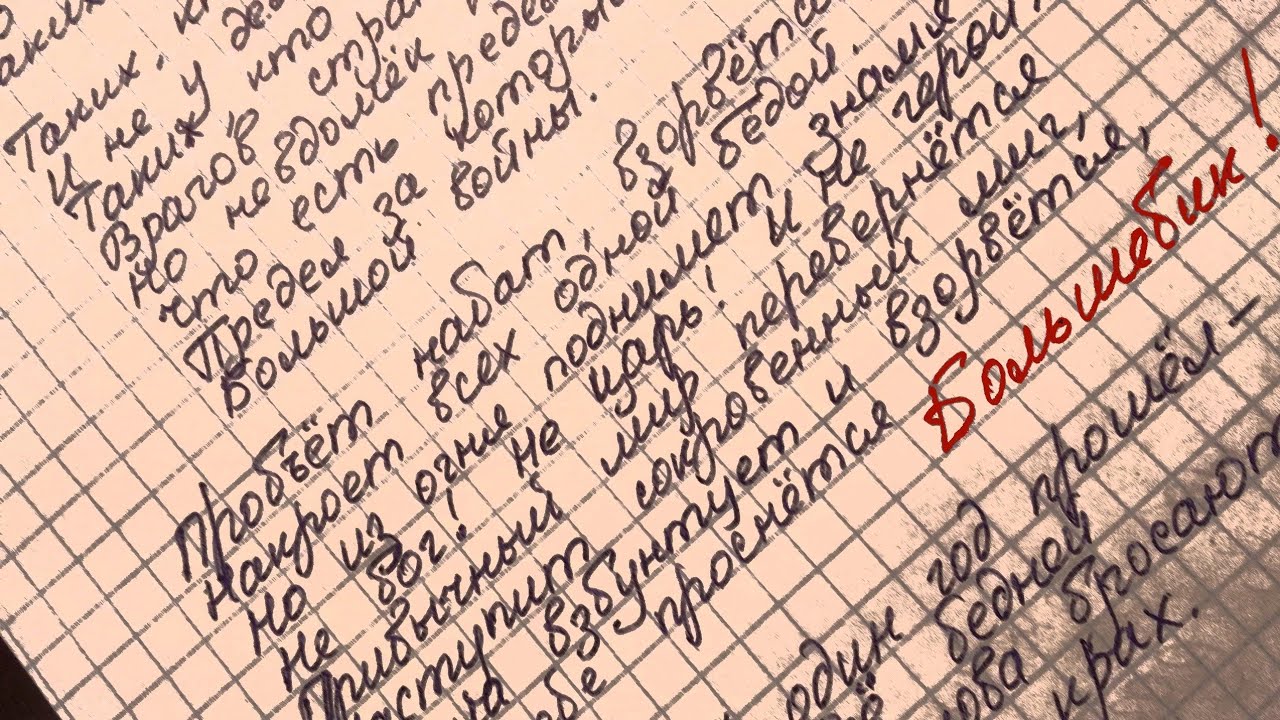 Таких,
И не у кто
Таких,
Врагов в
Но невдомёк
Что есть предел
Предел за которы
Большой войны.
Пробьёт набат, взорвётс
Накроет всех одной бедой.
Но из огня поднимет знамя
Не Бог! Не царь! И не герой!
Привычный мир перевернётся
Наступит сокровенный миг,
взбунтует и взорвётся,
проснётся Большевик!
один год прошёл-
бедней
бросают
крах.